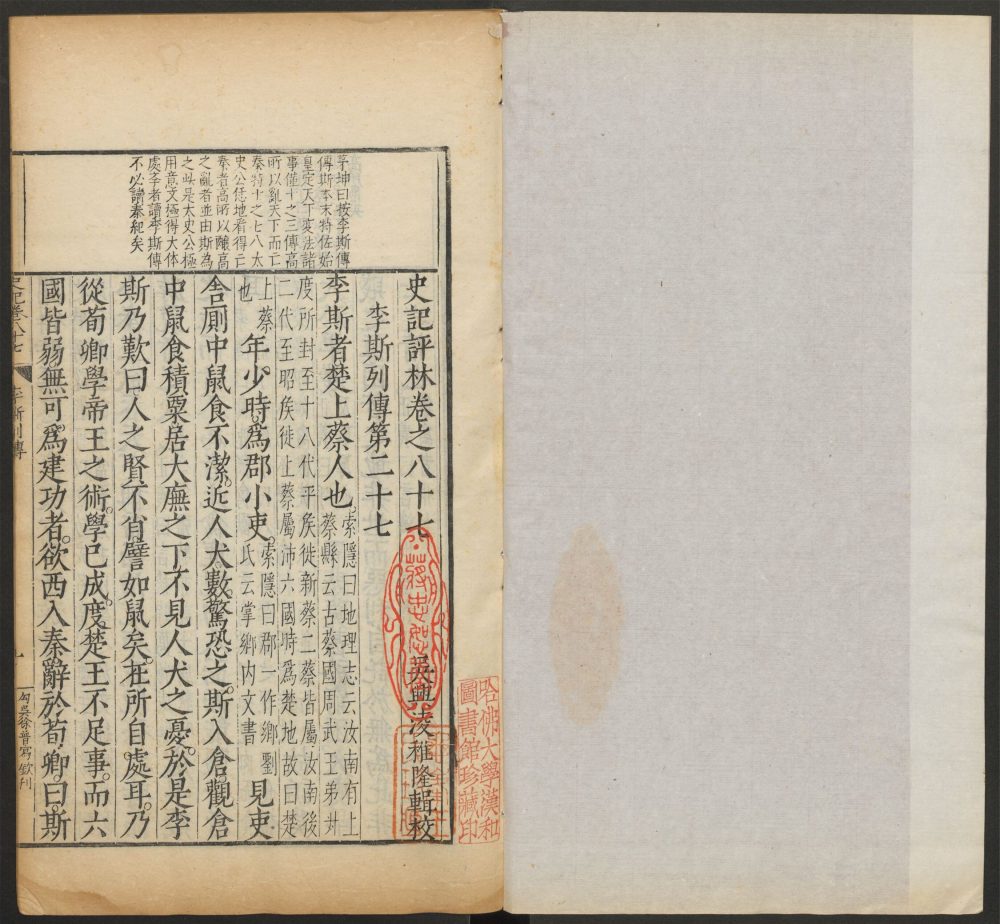 史記評林卷之八十七
吳興凌稚隆輯校
李斯列傳第二十七
李斯者楚上蔡人也索隱曰地理志云汝南有上
蔡縣云古蔡國周武王弟叔
度所封至十八代平侯徙新蔡二蔡皆屬汝南後
二代至昭侯徙上蔡屬沛六國時為楚地故曰楚
上蔡
也年少時爲郡小吏索隱曰郡一作鄉劉
氏云掌鄉内文書見吏
舍厠中鼠食不潔近人犬數驚恐之斯入倉觀倉
中鼠食積粟居大廡之下不見人犬之憂於是李
斯乃歎曰人之賢不肖譬如鼠矣在所自處耳乃
從荀卿學帝王之術學已成度楚王不足事而六
國皆弱無可爲建功者欲西入秦辭於荀卿曰斯
茅坤曰按李斯傳
傳斯本末特佐始
皇定天下變法諸
事僅十之三傳高
所以亂天下而亡
秦特十之七八太
史公恁地看得亡
秦者高所以釀高
之亂者並由斯為
之此是太史公極
用意文極得大体
處學者讀李斯傳
不必讀秦紀矣
史記卷八十七
李斯列傳
一
勾吳徐普寫 錢刊
蔣忠恕
哈佛大學漢和
圖書館珍藏印